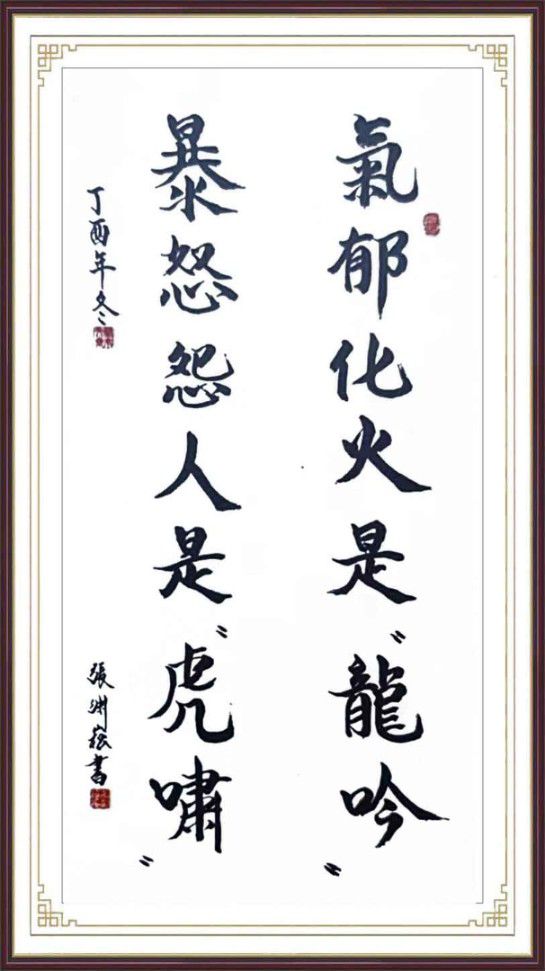 氣郁化火是"龍吟"
暴怒怨人是"虎嘯"
丁酉年冬
張洲書